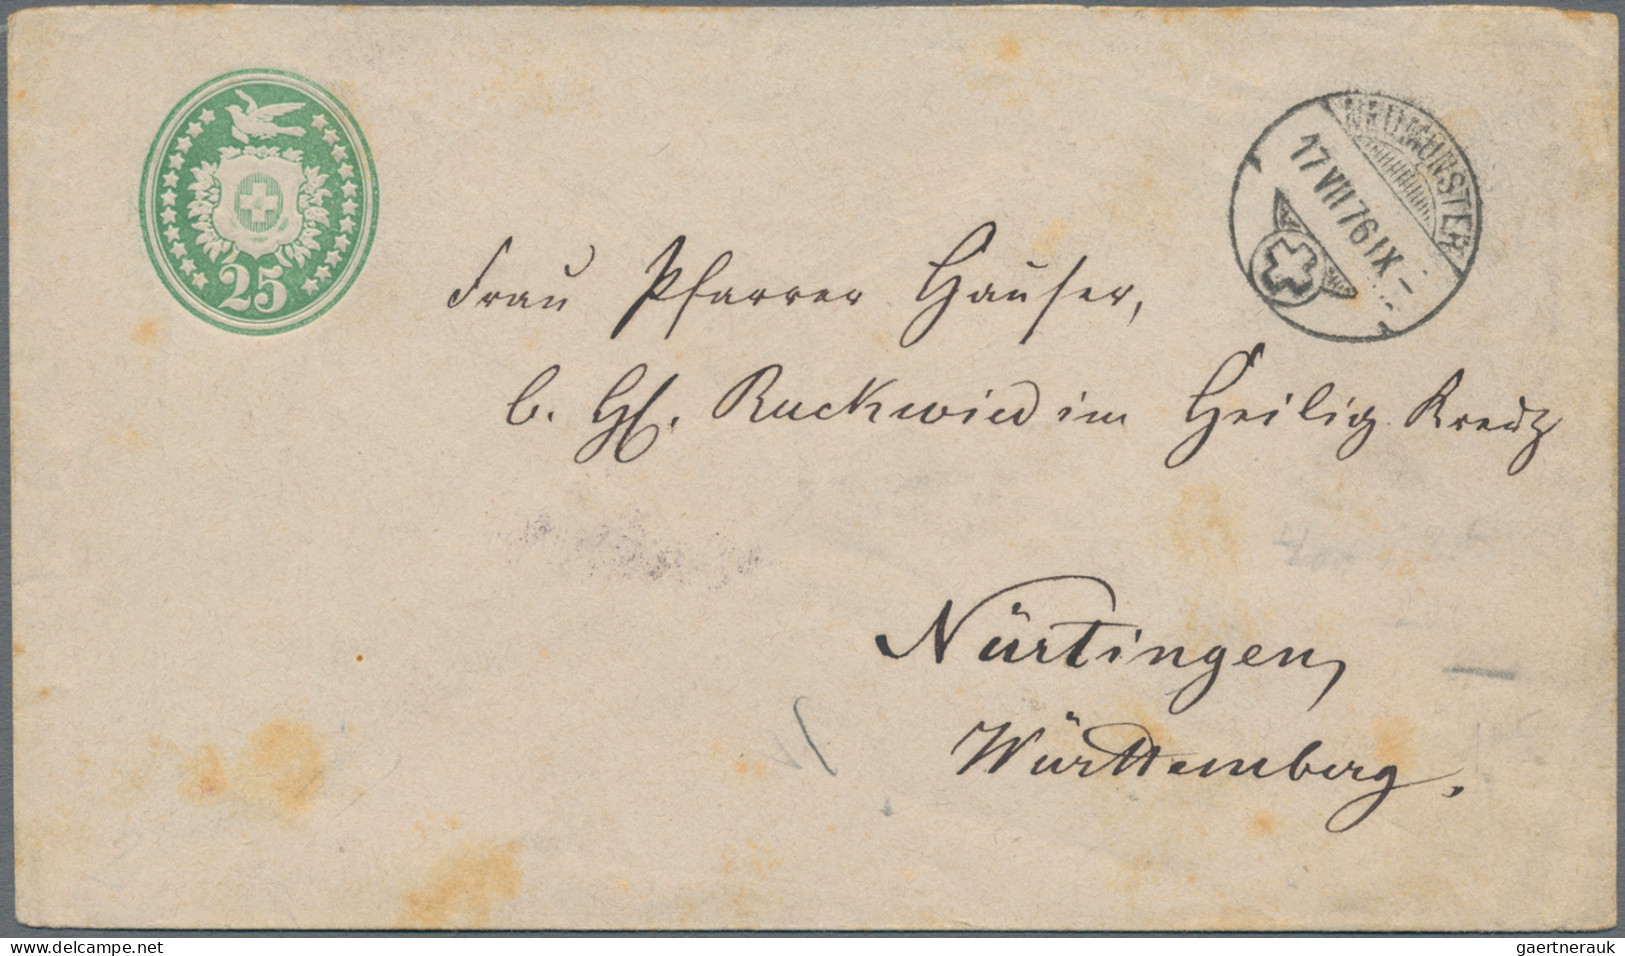 25
NEUMÜNSTER
17 VII 76 IX
Frau Pfarrer Hauser,
b. H. Ruckwied im Heilig Kreuz
Nürtingen,
Württemberg.
www.delcampe.net
gaertnerauk